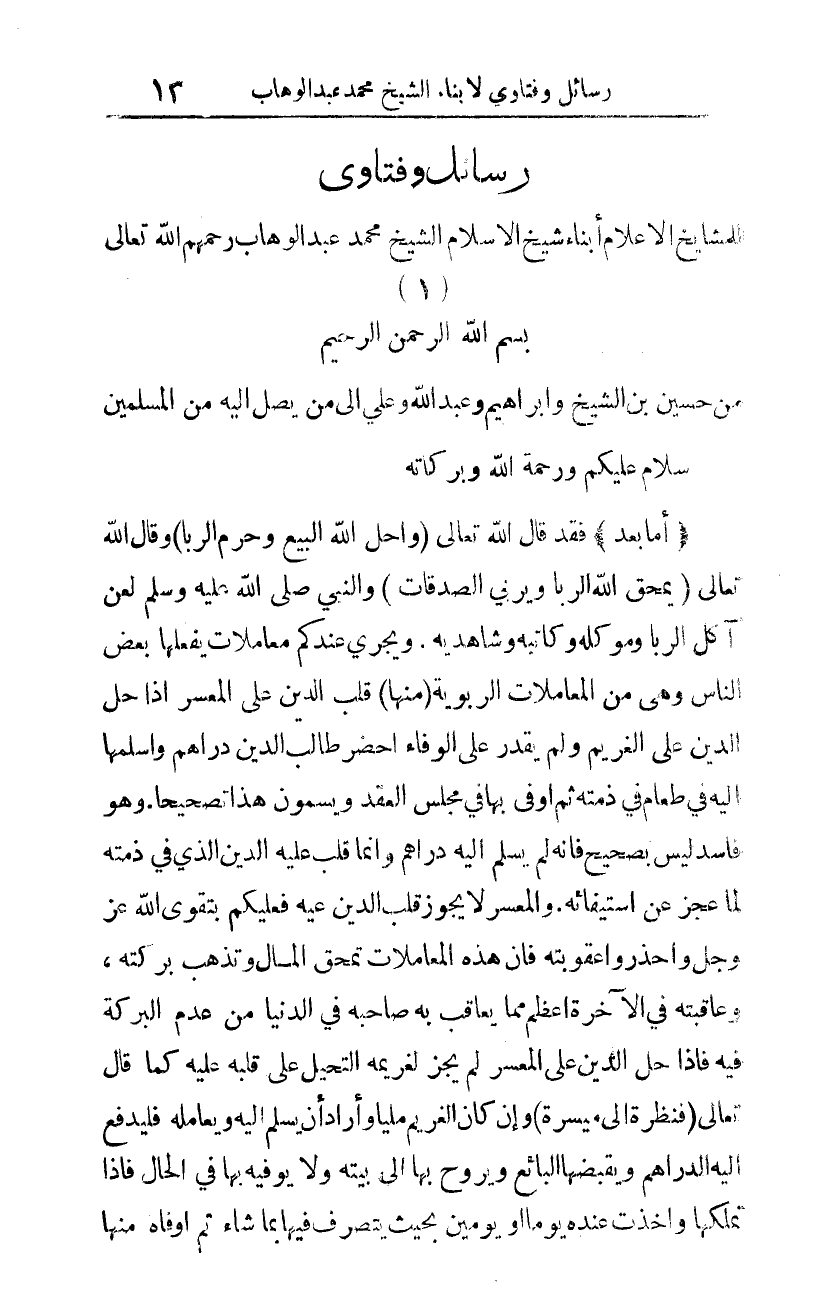 رسائل وفتاوي لابناء الشيخ محمد عبدالوهاب ١٣
رسائل وفتاوى
للمشايخ الاعلام أبناء شيخ الاسلام الشيخ محمد عبدالوهاب رحمهم الله تعالى
( ١ )
بسم الله الرحمن الرحيم
من حسين بن الشيخ وابراهيم وعبدالله وعلي الى من يصل اليه من المسلمين
سلام عليكم ورحمة الله وبركاته
﴿ أما بعد ﴾ فقد قال الله تعالى (واحل الله البيع وحرم الربا) وقال الله
تعالى ( يمحق الله الربا ويربي الصدقات ) والنبي صلى الله عليه وسلم لعن
آكل الربا وموكله وكاتبه وشاهديه . ويجري عندكم معاملات يفعلها بعض
الناس وهى من المعاملات الربوية (منها) قلب الدين على المعسر اذا حل
الدين على الغريم ولم يقدر على الوفاء احضر طالب الدين دراهم واسلمها
اليه في طعام في ذمته ثم اوفى بها في مجلس العقد ويسمون هذا تصحيحا. وهو
فاسد ليس بصحيح فانه لم يسلم اليه دراهم وانما قلب عليه الدين الذي في ذمته
لما عجز عن استيفائه. والمعسر لا يجوز قلب الدين عيه فعليكم بتقوى الله عز
وجل واحذروا عقوبته فان هذه المعاملات تمحق المال وتذهب بركته ،
وعاقبته في الآخرة اعظم مما يعاقب به صاحبه في الدنيا من عدم البركة
فيه فاذا حل الدين على المعسر لم يجز لغريمه التحيل على قلبه عليه كما قال
تعالى (فنظرة الى ميسرة) وإن كان الغريم مليا وأراد أن يسلم اليه ويعامله فليدفع
اليه الدراهم ويقبضها البائع ويروح بها الى بيته ولا يوفيه بها في الحال فاذا
تملكها واخذت عنده يوما او يومين بحيث يتصرف فيها بما شاء ثم اوفاه منها